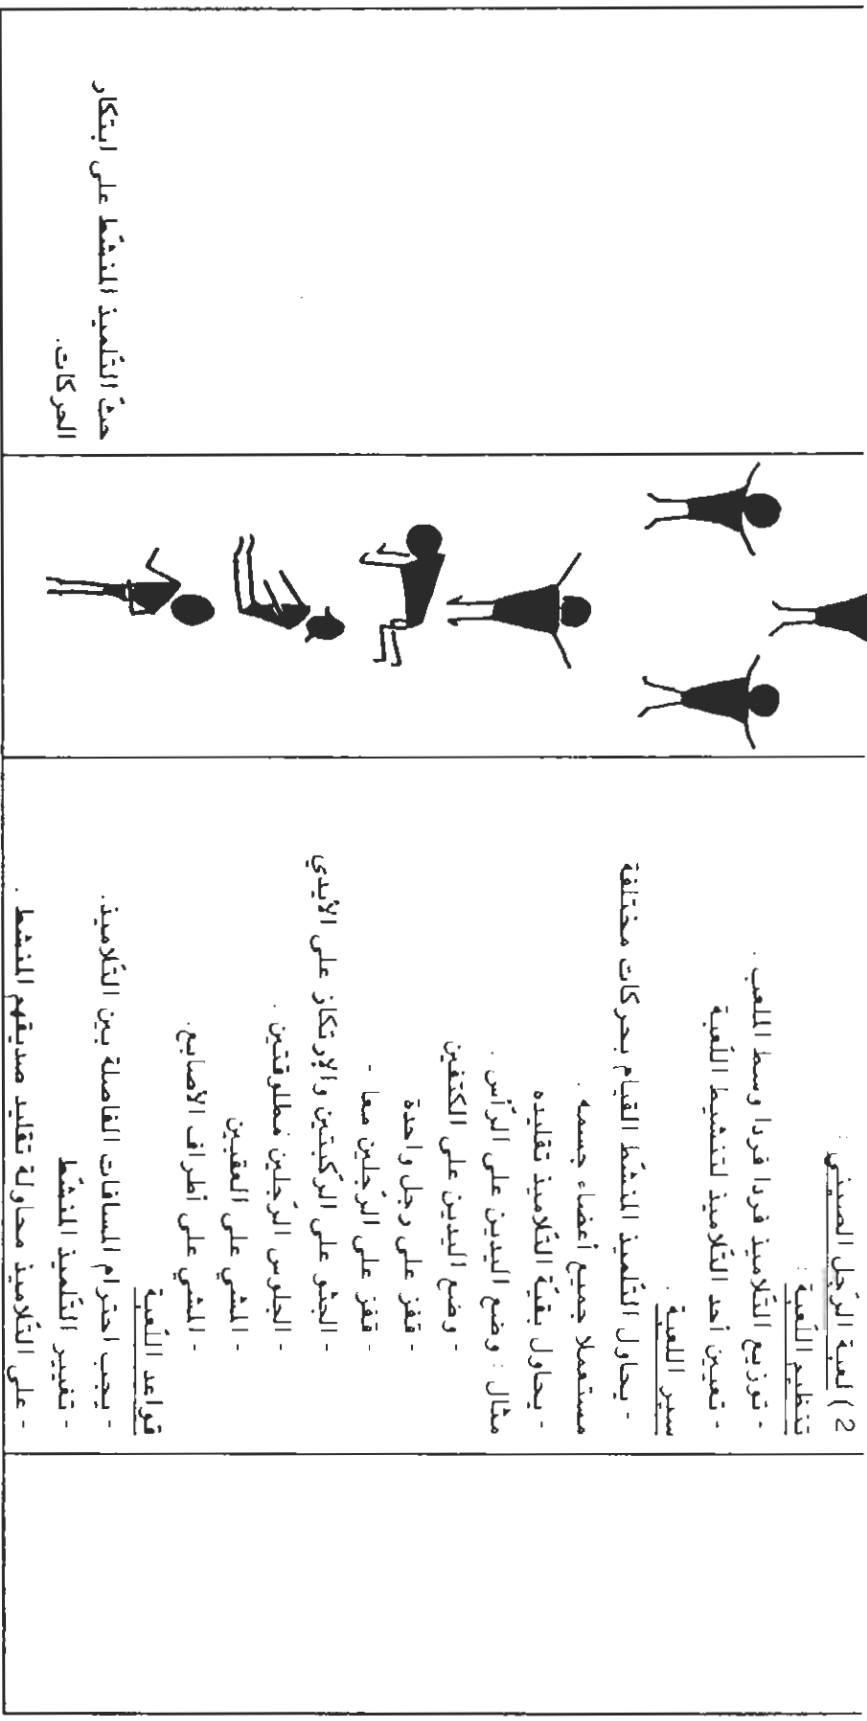 2) لعبة الرّجل الصيني :
تنظيم اللّعبة :
- توزيع التّلاميذ فردا فردا وسط الملعب .
- تعيين أحد التّلاميذ لتنشيط اللّعبة
سير اللعبة .
- يحاول التّلميذ المنشّط القيام بحركات مختلفة
مستعملا جميع أعضاء جسمه .
- يحاول بقيّة التّلاميذ تقليده
مثال : وضع اليدين على الرّأس .
- وضع اليدين على الكتفين
- قفز على رجل واحدة
- قفز على الرّجلين معا -
- الجثو على الرّكبتين والإرتكاز على الأيدي
- الجلوس الرّجلين مطلوقتين .
- المشي على العقبين
- المشي على أطراف الأصابع.
قواعد اللّعبة
- يجب احترام المسافات الفاصلة بين التّلاميذ.
- تغيير التّلميذ المنشّط
- على التّلاميذ محاولة تقليد صديقهم المنشّط .
حثّ التّلميذ المنشّط على ابتكار
الحركات.